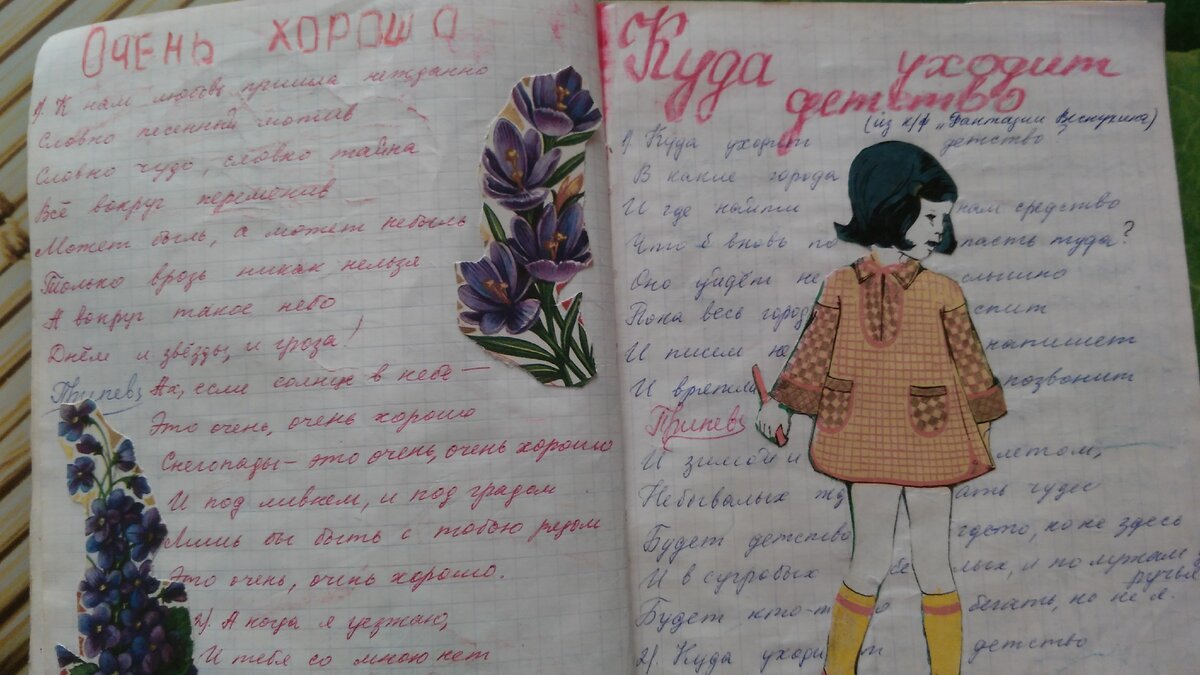 ОЧЕНЬ ХОРОШО
1). К нам любовь пришла нежданно
Словно песенный мотив
Словно чудо, словно тайна
Всё вокруг переменив
Может быль, а может небыль
Только врозь никак нельзя
А вокруг такое небо
Днём и звёзды, и гроза!
Припев: Ах, если солнце в небе —
Это очень, очень хорошо
Снегопады — это очень, очень хорошо
И под ливнем, и под градом
Лишь бы быть с тобою рядом
Это очень, очень хорошо.
2). А когда я уезжаю,
И тебя со мною нет
Куда уходит
детство
(из к/ф „Фантазии Веснухина")
1). Куда уходит детство
В какие города
И где найти нам средство
Что б вновь попасть туда?
Оно уйдёт неслышно
Пока весь город спит
И писем не напишет
И вряд ли позвонит
Припев:
И зимой и летом,
Небывалых ждать чудес
Будет детство где-то, но не здесь
И в сугробах белых, и по лужам у
ручья
Будет кто-то бегать, но не я.
2). Куда уходит детство